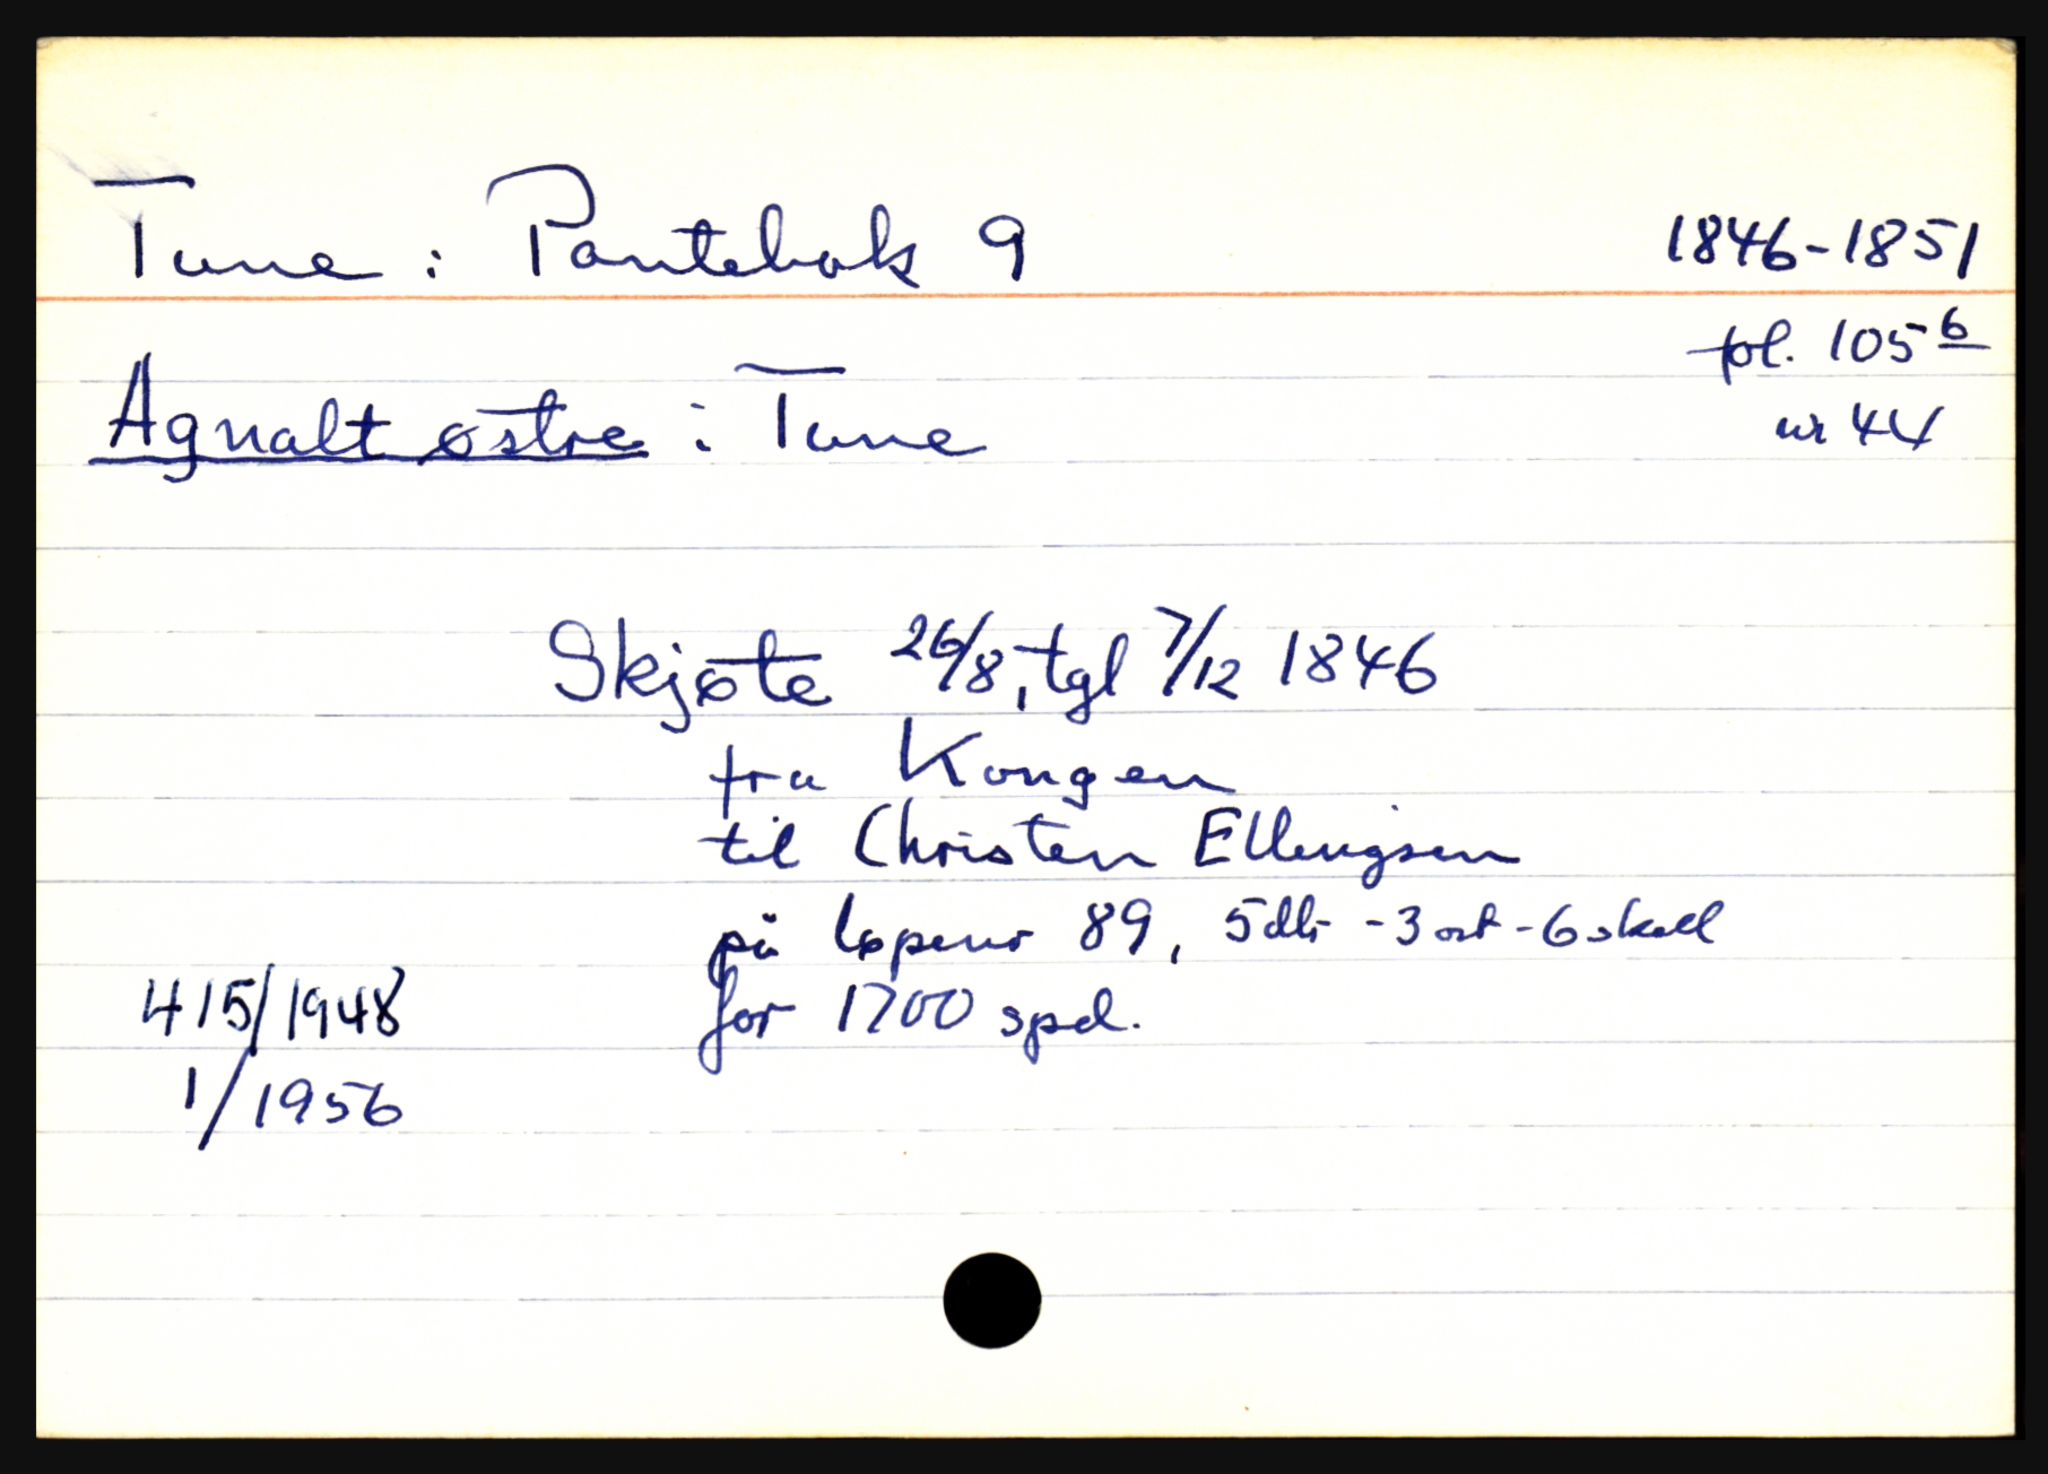 Tune : Pantebok 9 1846-1851
fol. 105 b
Agnalt østre : Tune
nr 44
Skjøte 26/8, tgl 7/12 1846
fra Kongen
til Christen Ellingsen
på løpenr 89, 5 dlr - 3 ort - 6 skill
415/1948 for 1700 spd.
1/1956